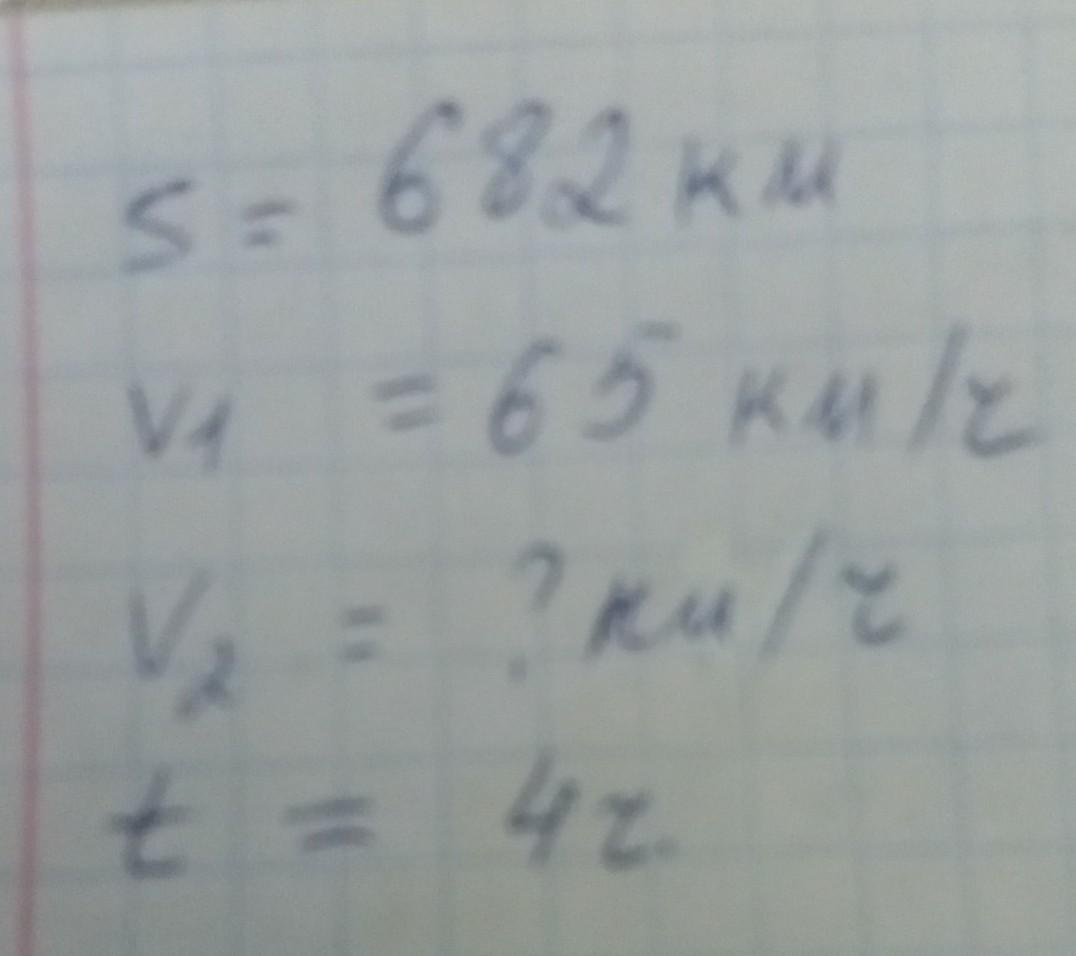 S = 682 км
V1 = 65 км/ч
V2 = ? км/ч
t = 4 ч.